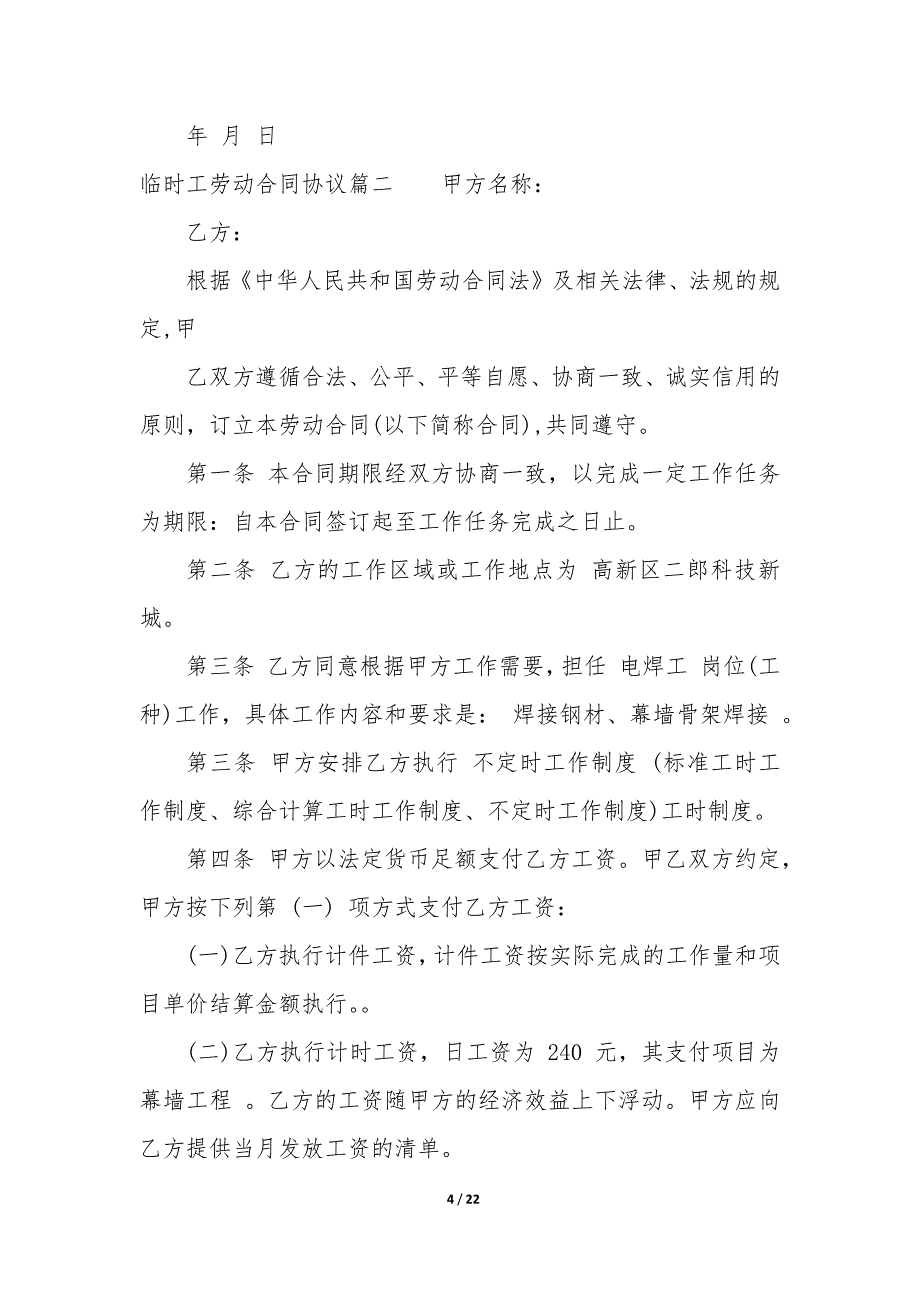 年 月 日
临时工劳动合同协议篇二 甲方名称:
乙方:
根据《中华人民共和国劳动合同法》及相关法律、法规的规
定,甲
乙双方遵循合法、公平、平等自愿、协商一致、诚实信用的
原则，订立本劳动合同(以下简称合同),共同遵守。
第一条 本合同期限经双方协商一致，以完成一定工作任务
为期限：自本合同签订起至工作任务完成之日止。
第二条 乙方的工作区域或工作地点为 高新区二郎科技新
城。
第三条 乙方同意根据甲方工作需要,担任 电焊工 岗位(工
种)工作，具体工作内容和要求是： 焊接钢材、幕墙骨架焊接 。
第三条 甲方安排乙方执行 不定时工作制度 (标准工时工
作制度、综合计算工时工作制度、不定时工作制度)工时制度。
第四条 甲方以法定货币足额支付乙方工资。甲乙双方约定，
甲方按下列第 (一) 项方式支付乙方工资：
(一)乙方执行计件工资,计件工资按实际完成的工作量和项
目单价结算金额执行。。
(二)乙方执行计时工资，日工资为 240 元，其支付项目为
幕墙工程 。乙方的工资随甲方的经济效益上下浮动。甲方应向
乙方提供当月发放工资的清单。
4 / 22